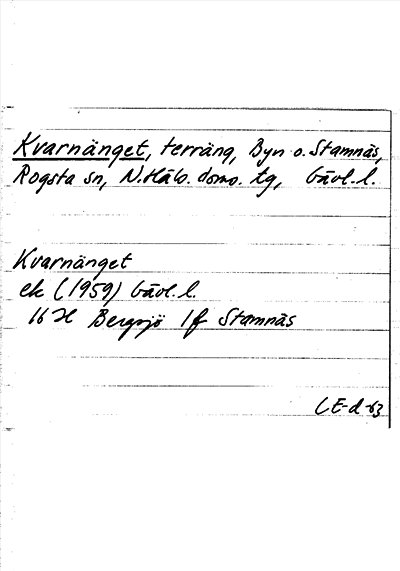 Kvarnänget, terräng, Byn o. Stamnäs,
Rogsta sn, N. Häls. doms. tg, Gävl. l.
Kvarnänget
ek (1959) Gävl. l.
16 H Bergsjö 1f Stamnäs
LE-d-63